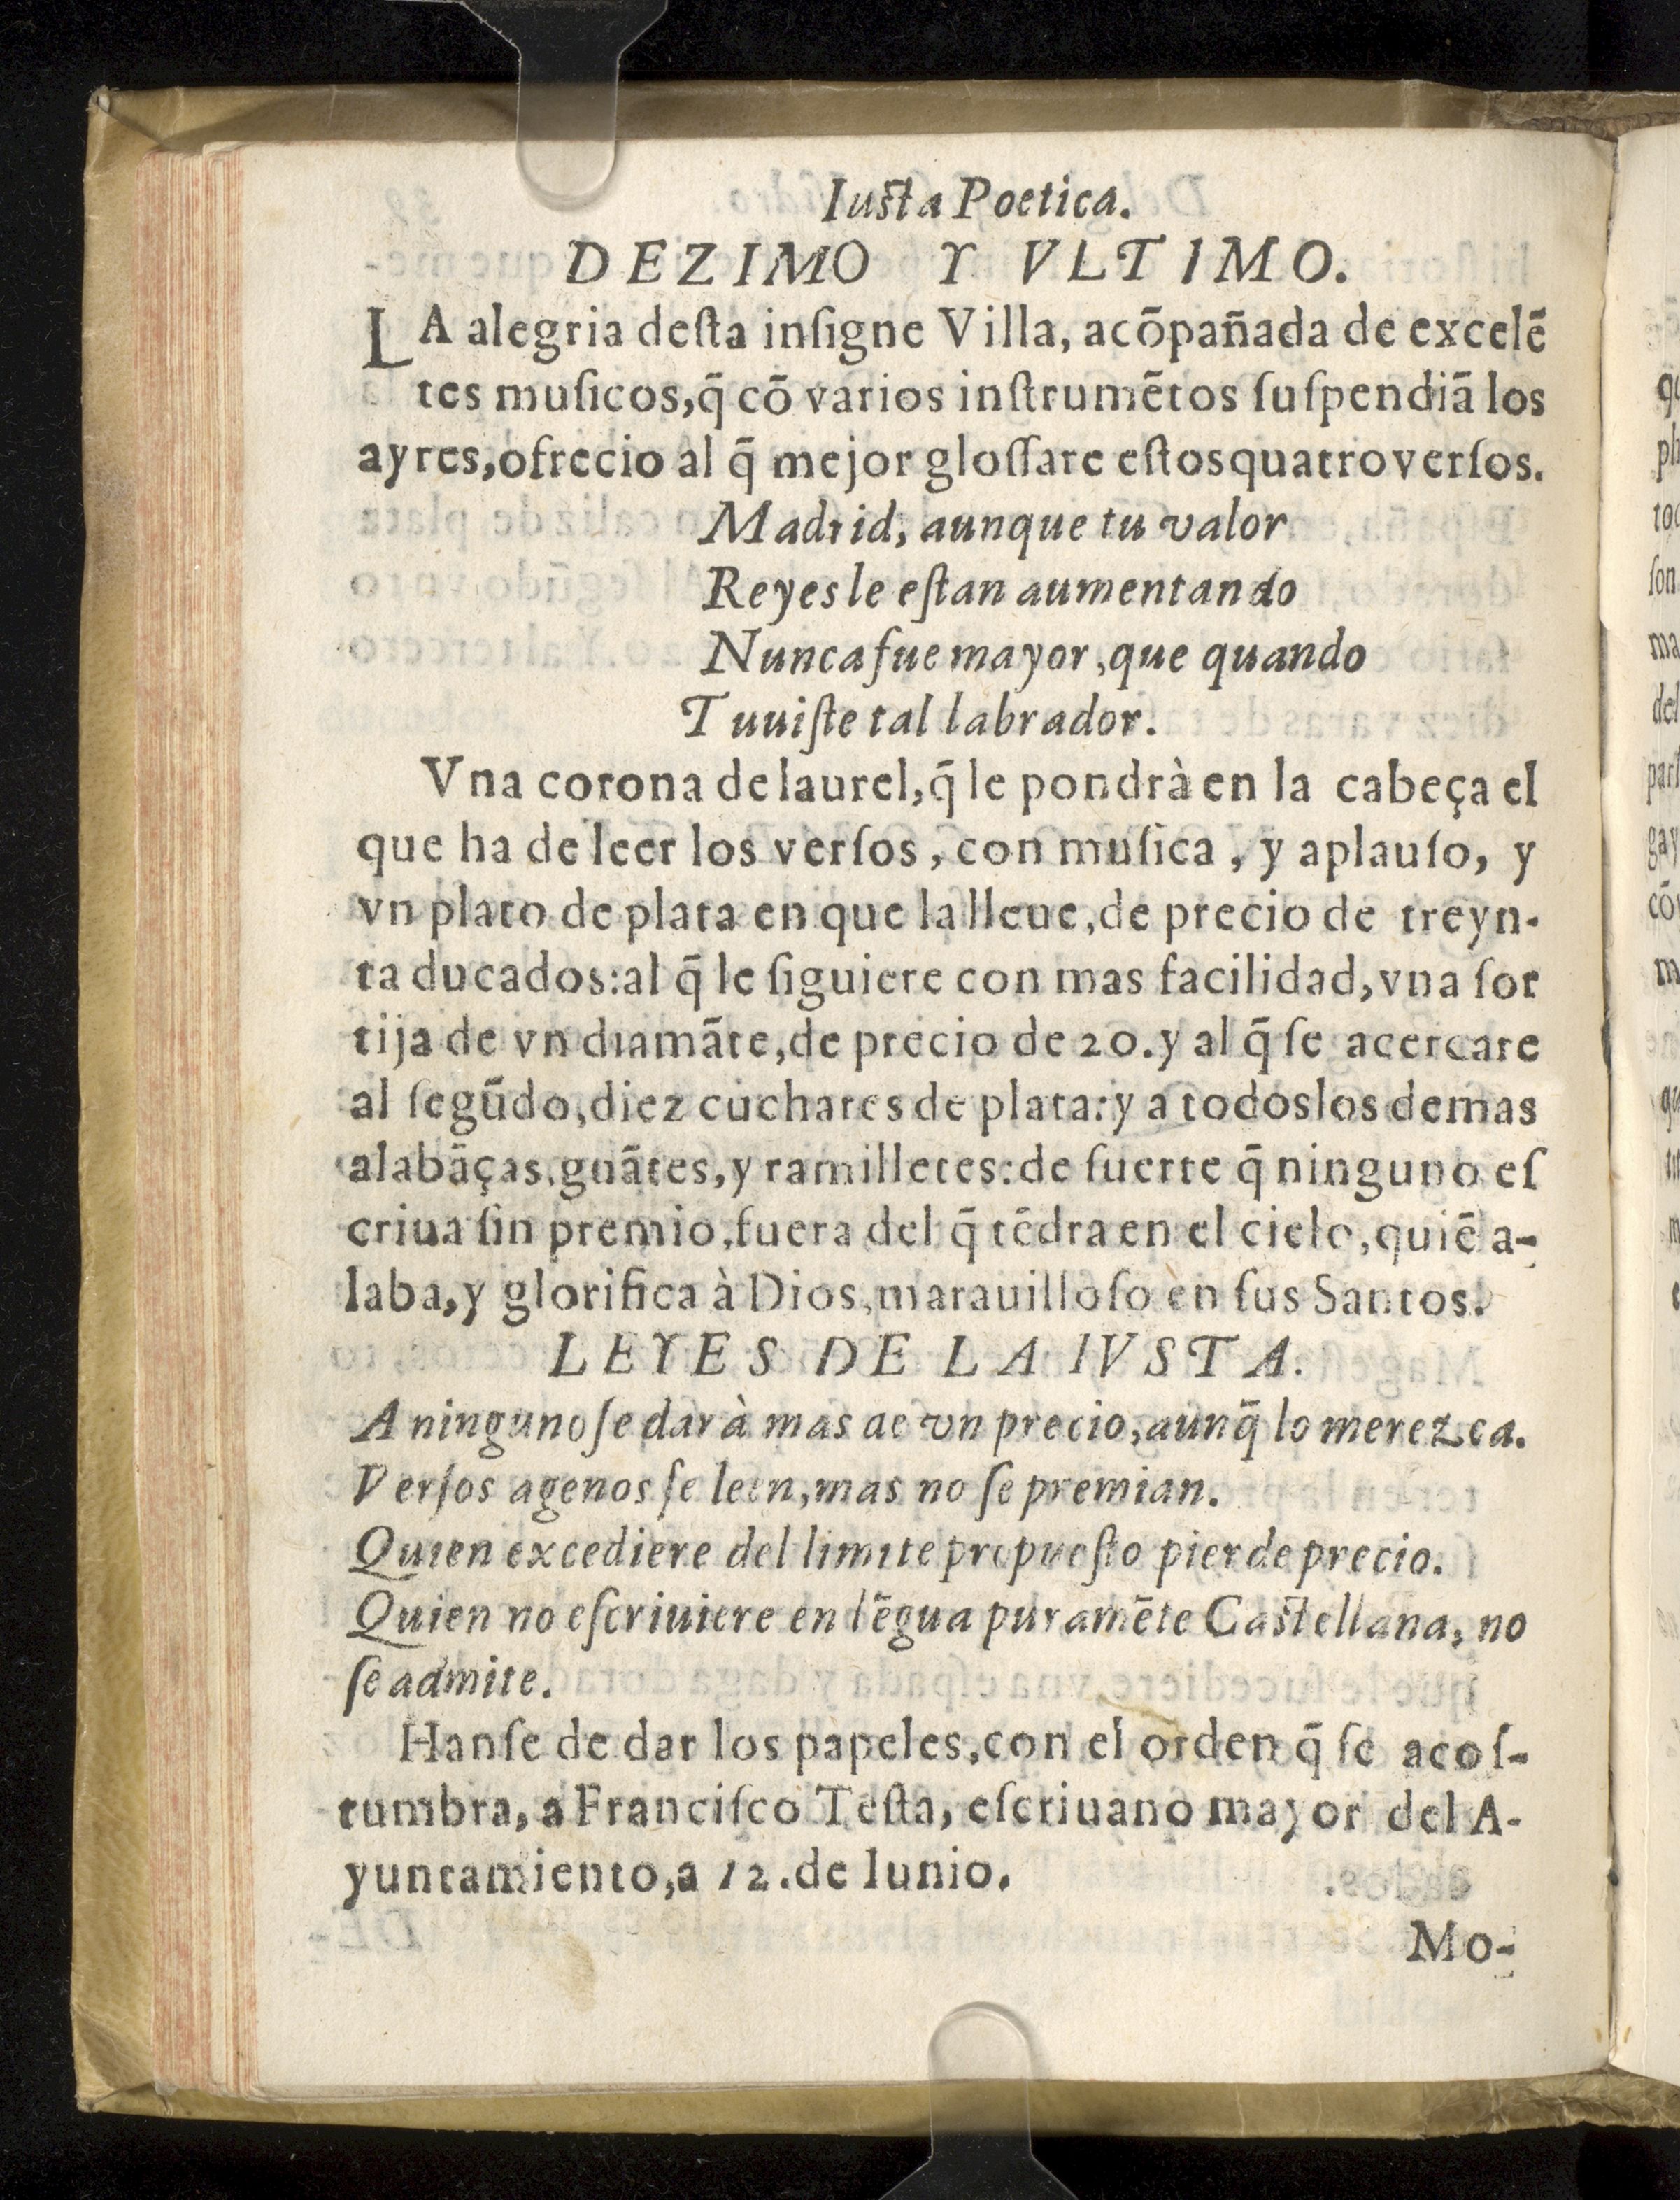 Iusta Poetica.
DEZIMO Y VLTIMO.
LA alegria desta insigne Villa, acõpañada de excelẽ
tes musicos, q̃ cõ varios instrumẽtos suspendiã los
ayres, ofrecio al q̃ mejor glossare estos quatro versos.
Madrid, aunque tu valor
Reyes le estan aumentando
Nunca fue mayor, que quando
Tuuiste tal labrador.
Vna corona de laurel, q̃ le pondrà en la cabeça el
que ha de leer los versos, con musica, y aplauso, y
vn plato de plata en que la lleue, de precio de treyn-
ta ducados: al q̃ le siguiere con mas facilidad, vna sor
tija de vn diamãte, de precio de 20. y al q̃ se acercare
al segũdo, diez cuchares de plata: y a todos los demas
alabãças, guãtes, y ramilletes: de suerte q̃ ninguno es
criua sin premio, fuera del q̃ tẽdra en el cielo, quiẽ a-
laba, y glorifica à Dios, marauilloso en sus Santos.
LEYES DE LA IVSTA.
A ninguno se darà mas de vn precio, aunq̃ lo merezca.
Versos agenos se leen, mas no se premian.
Quien excediere del limite propuesto pierde precio.
Quien no escriuiere en lẽgua puramẽte Castellana, no
se admite.
Hanse de dar los papeles, con el orden q̃ se acos-
tumbra, a Francisco Testa, escriuano mayor del A-
yuntamiento, a 12. de Iunio.
Mo-